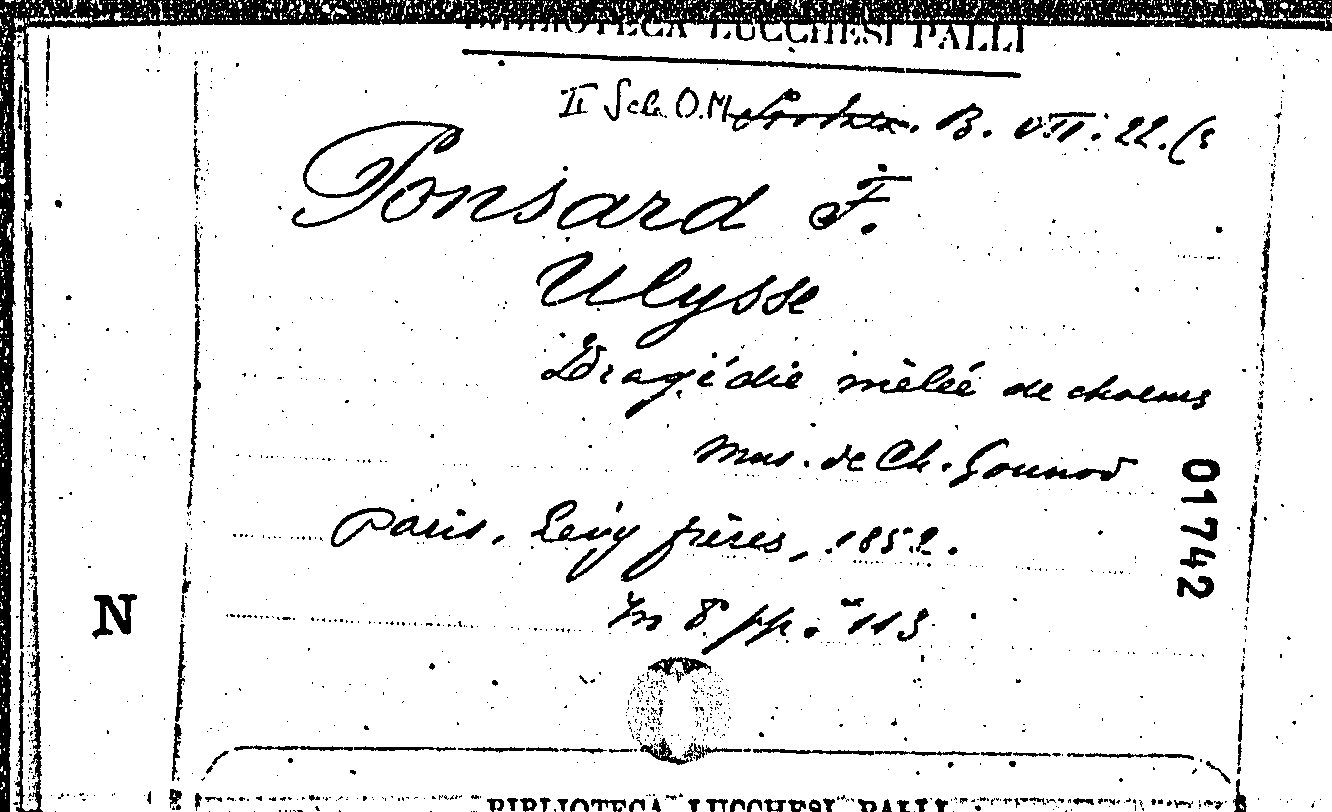 BIBLIOTECA LUCCHESI PALLI
II Sch. O.M. B. VII. 22. (3
Ponsard F.
Ulysse
Tragédie mêlée de choeurs
mus. de Ch. Gounod
Paris, Levy frères, 1852.
In 8° pp. 113
01742
N
BIBLIOTECA LUCCHESI PALLI